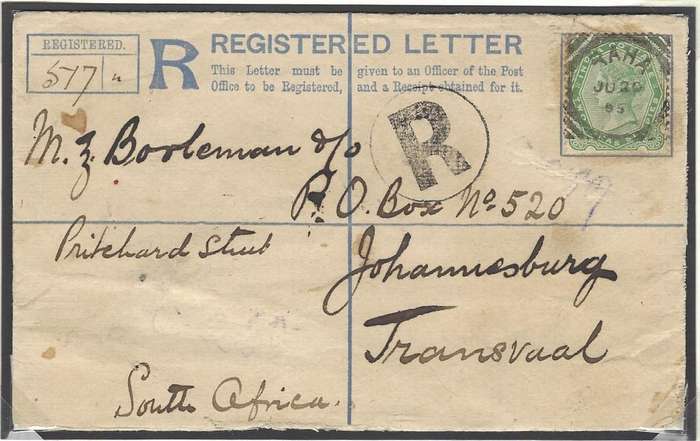 REGISTERED.
517
R
REGISTERED LETTER
This Letter must be given to an Officer of the Post
Office to be Registered, and a Receipt obtained for it.
JU 20
95
R
M. Z. Boorleman c/o
P.O. Box No. 520
Pritchard Street
Johannesburg
Transvaal
South Africa.